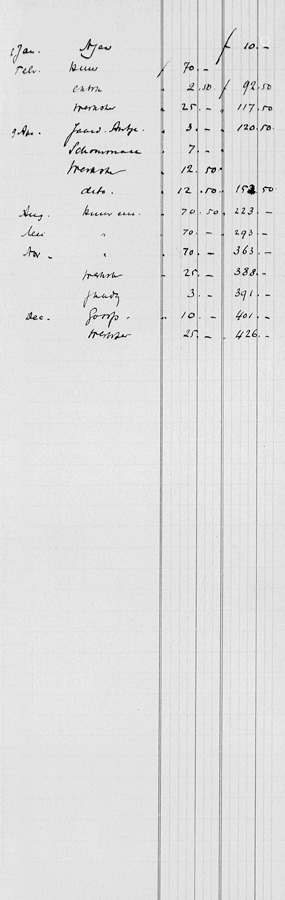 1 Jan. Ajax ƒ 10. -
Febr. Huur ƒ 70. -
extra " 2.50 ƒ 92.50
werkster " 25. - " 117.50
9 Apr. " 3. - " 120.50
Schoonmaak " 7. -
werkster " 12.50
dito. " 12.50 " 152.50
Aug. Huur " 70.50 " 223. -
" " 70. - " 293. -
Nov. " " 70. - " 363. -
werkster " 25. - " 388. -
" 3. - " 391. -
Dec. " 10. - " 401. -
werkster " 25. - " 426. -